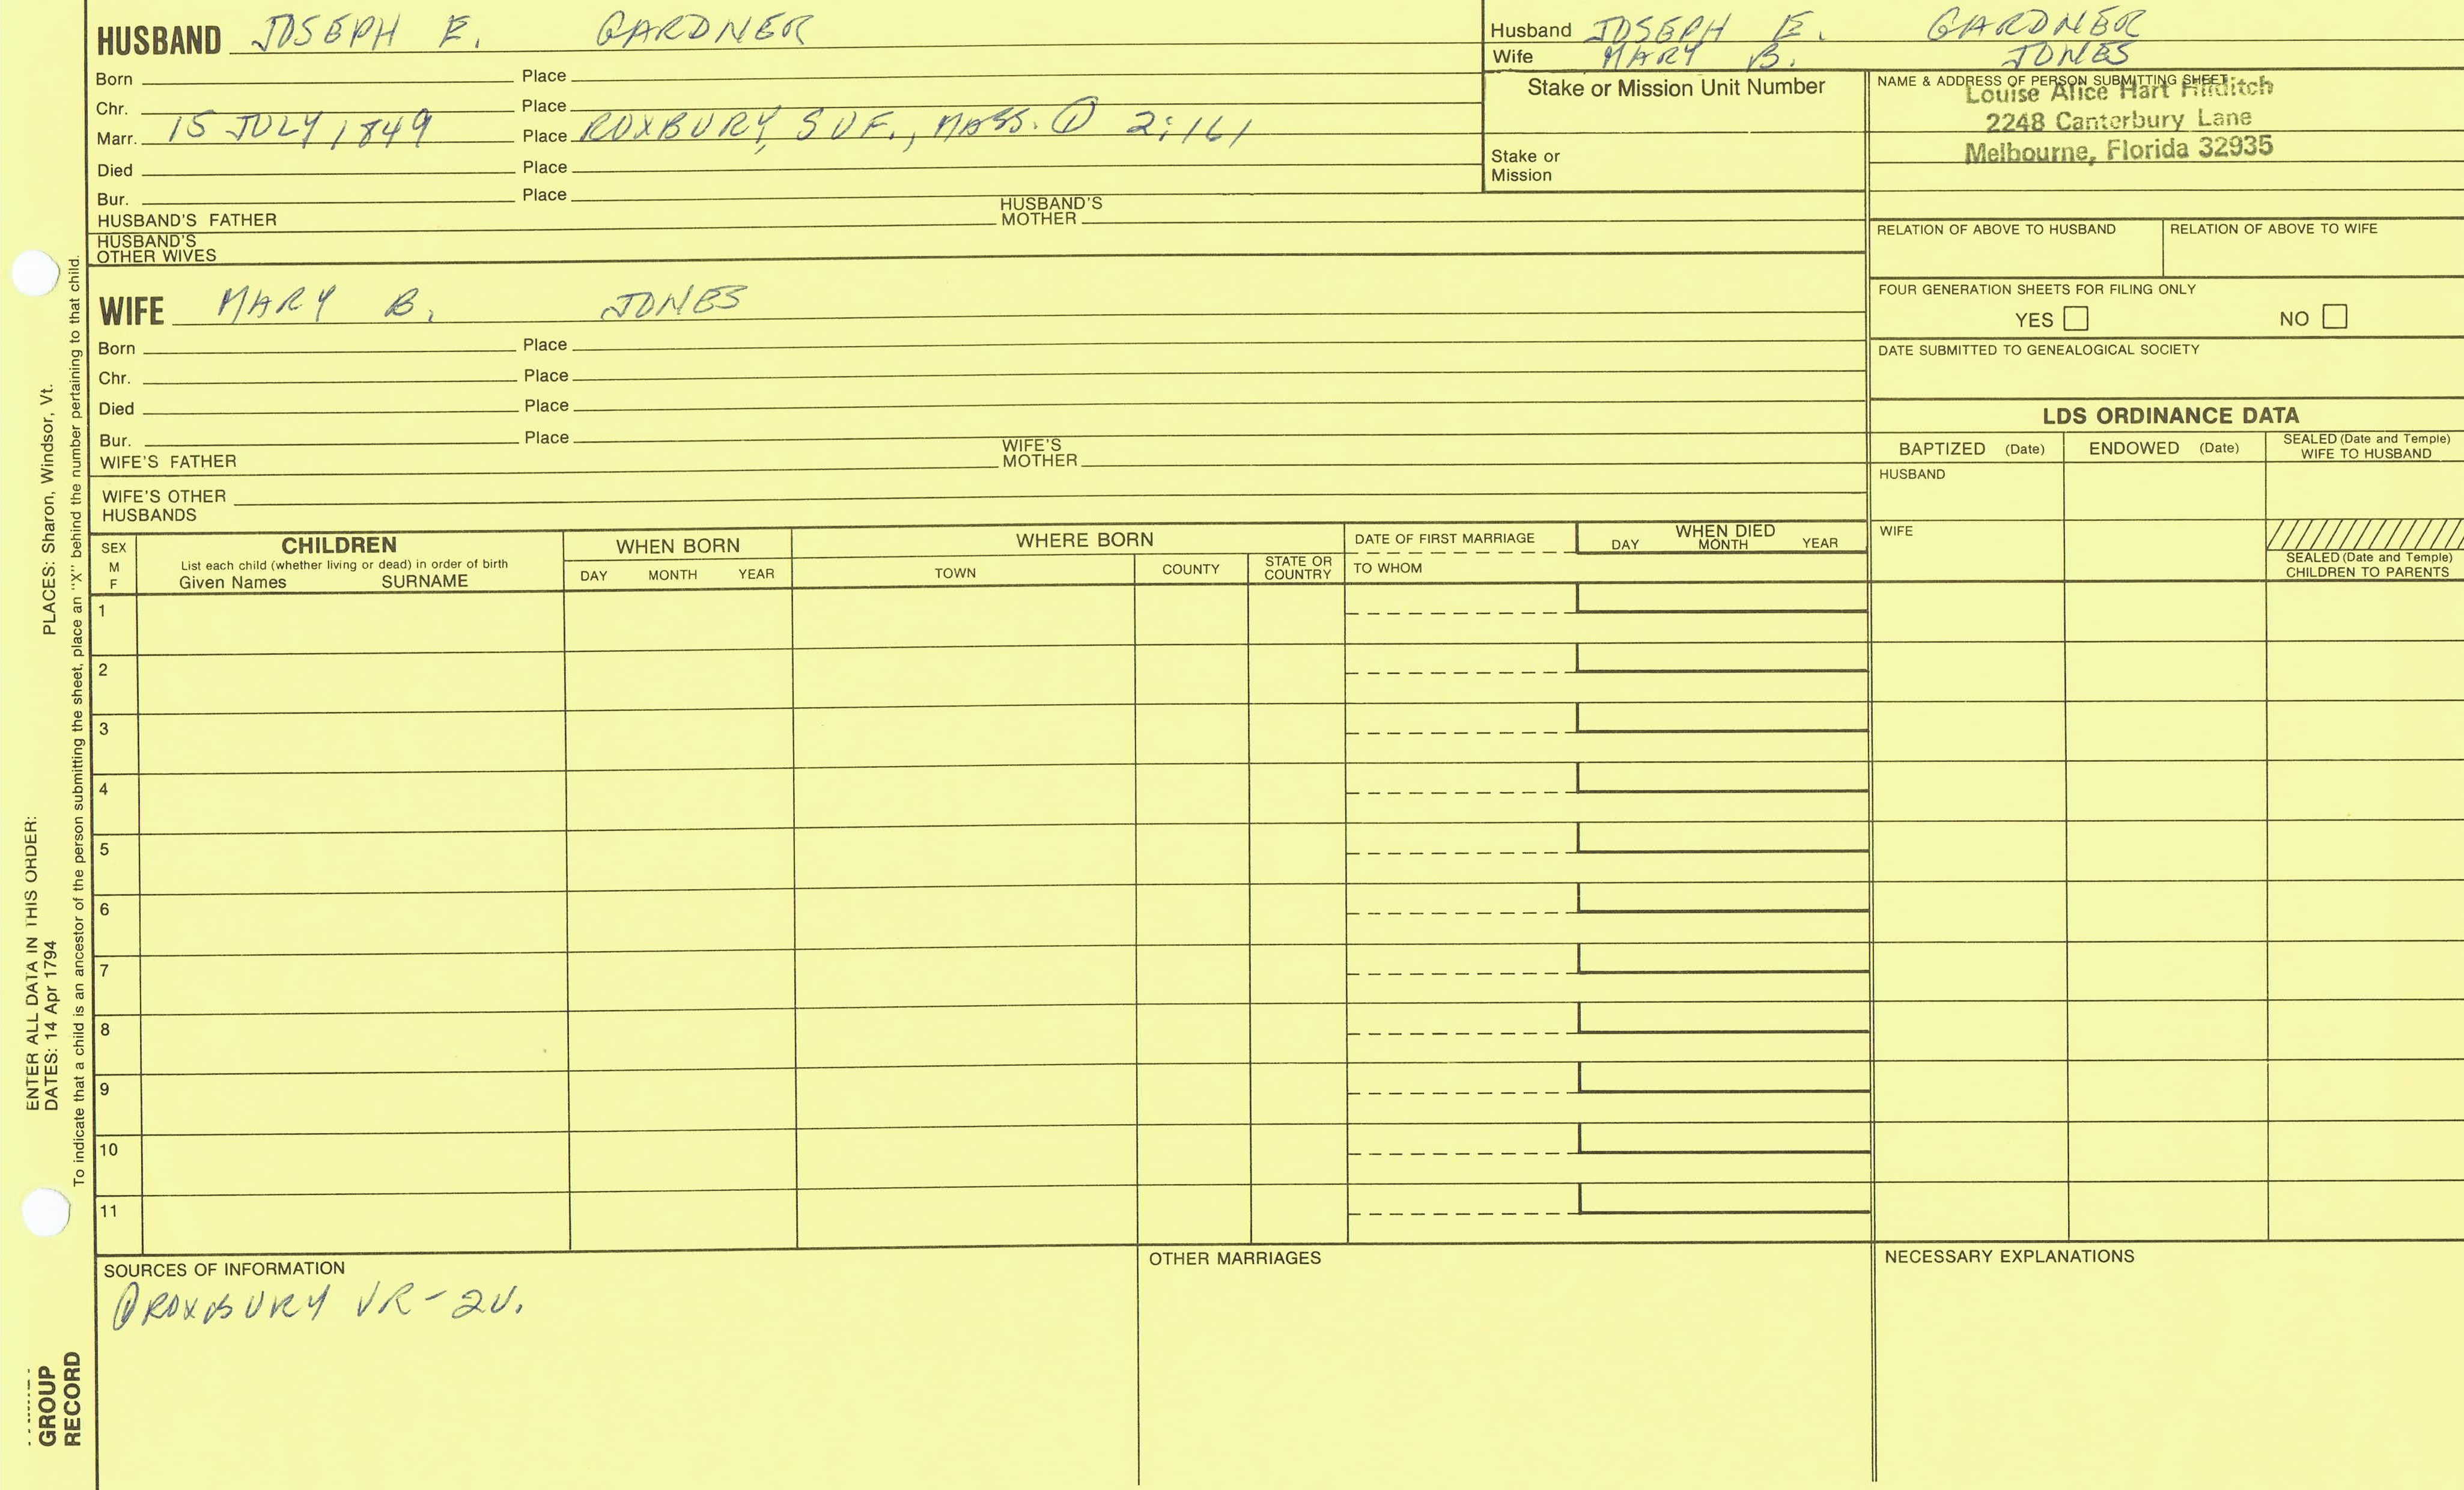 HUSBAND JOSEPH E. GARDNER
Born Place
Chr. Place
Marr. 15 JULY 1849 Place ROXBURY, SUF., MASS. ① 2:161
Died Place
Bur. Place
HUSBAND'S FATHER HUSBAND'S MOTHER
HUSBAND'S
OTHER WIVES
Husband JOSEPH E. GARDNER
Wife MARY B. JONES
Stake or Mission Unit Number
Stake or
Mission
NAME & ADDRESS OF PERSON SUBMITTING SHEET
Louise Alice Hart Hilditch
2248 Canterbury Lane
Melbourne, Florida 32935
RELATION OF ABOVE TO HUSBAND RELATION OF ABOVE TO WIFE
FOUR GENERATION SHEETS FOR FILING ONLY
YES NO
DATE SUBMITTED TO GENEALOGICAL SOCIETY
WIFE MARY B. JONES
Born Place
Chr. Place
Died Place
Bur. Place
WIFE'S FATHER WIFE'S MOTHER
WIFE'S OTHER
HUSBANDS
LDS ORDINANCE DATA
BAPTIZED (Date) ENDOWED (Date) SEALED (Date and Temple) WIFE TO HUSBAND
HUSBAND
WIFE
SEALED (Date and Temple)
CHILDREN TO PARENTS
SEX
M
F
CHILDREN
List each child (whether living or dead) in order of birth
Given Names SURNAME
WHEN BORN
DAY MONTH YEAR
WHERE BORN
TOWN COUNTY STATE OR COUNTRY
DATE OF FIRST MARRIAGE
TO WHOM
WHEN DIED
DAY MONTH YEAR
1
2
3
4
5
6
7
8
9
10
11
SOURCES OF INFORMATION
① ROXBURY VR-2V.
OTHER MARRIAGES
NECESSARY EXPLANATIONS
ENTER ALL DATA IN THIS ORDER:
DATES: 14 Apr 1794 PLACES: Sharon, Windsor, Vt.
To indicate that a child is an ancestor of the person submitting the sheet, place an "X" behind the number pertaining to that child.
GROUP
RECORD